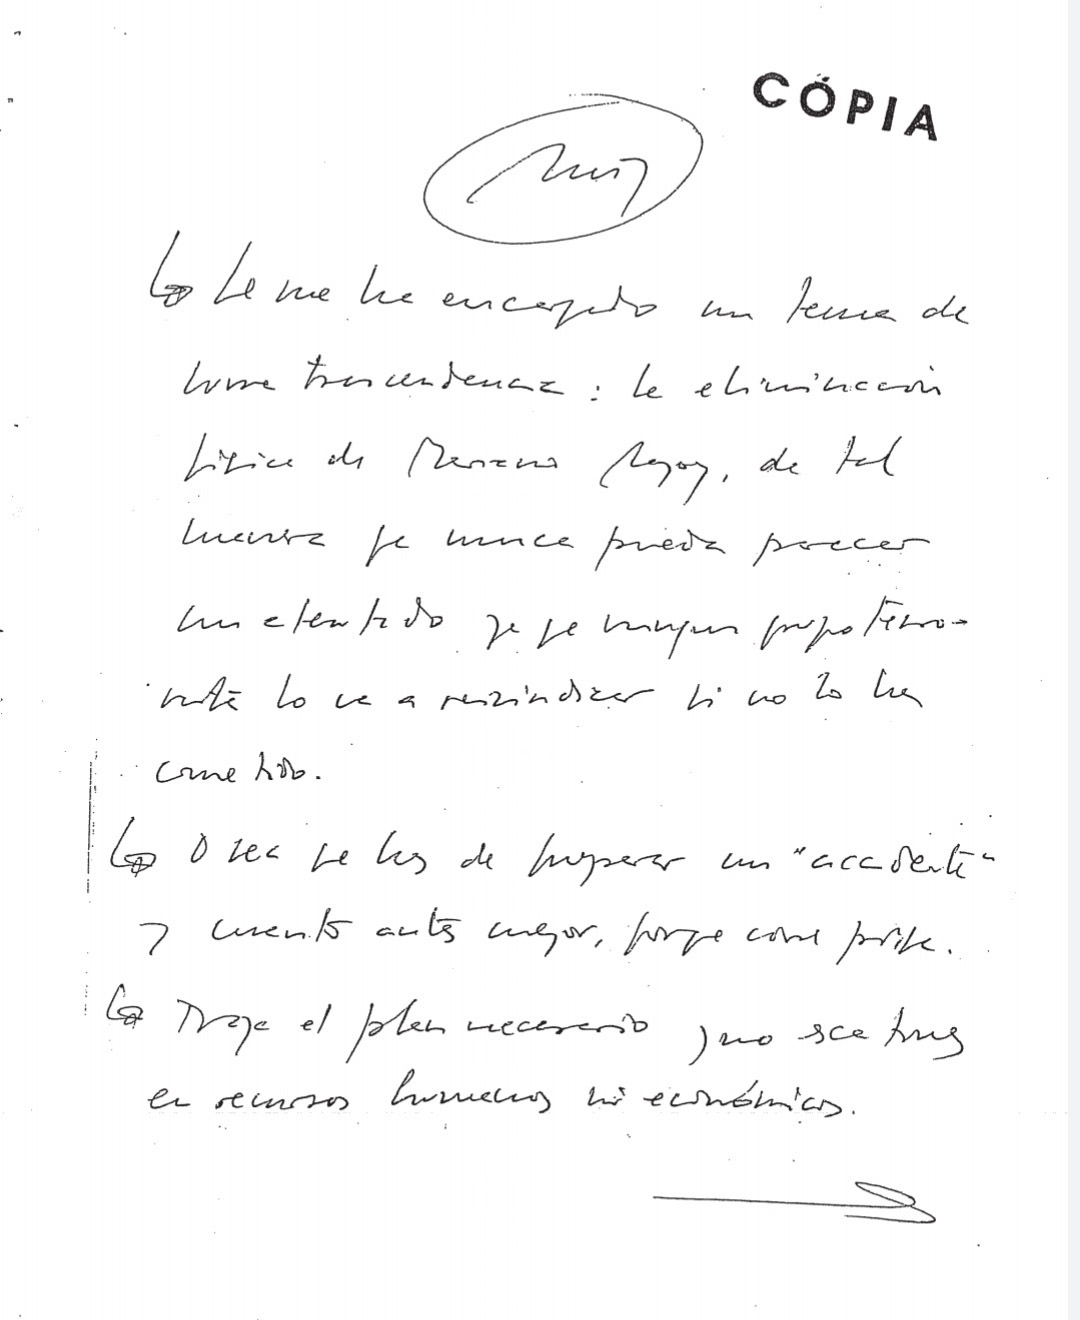 CÓPIA
Muy
Se me ha encargado un tema de
suma trascendencia: la eliminación
física de Mariano Rajoy, de tal
manera qe nunca pueda parecer
un atentado ya qe ningun grupo terro-
rista lo va a reivindicar si no lo ha
cometido.
O sea qe has de preparar un "accidente"
y cuanto antes mejor, porqe corre prisa.
Traza el plan necesario y no seas
en recursos humanos ni económicos.